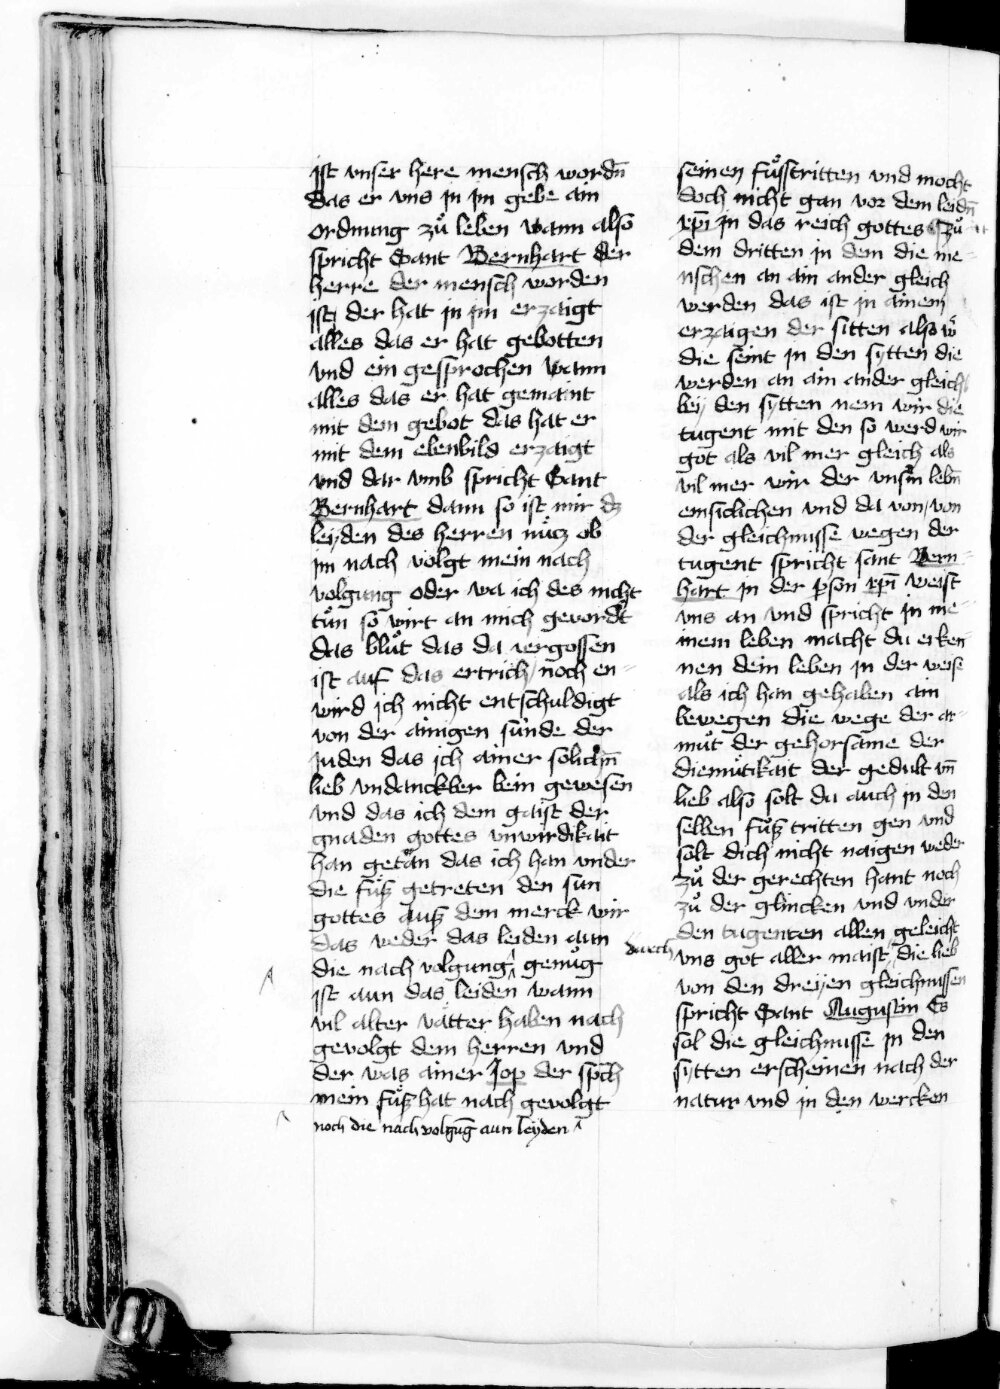 ist vnser here mensch wordn̄
das er vns jn jm gebe ain
ordnung zuͦ leben wann also
spricht Sant Bernhart der
herre der mensch worden
ist der hat in jm erzaigt
alles das er hat gebotten
vnd ein gesprochen wann
alles das er hat gemaint
mit dem gebot das hat er
mit dem ebenbild erzaigt
vnd dar vmb spricht Sant
Bernhart dann so ist mir dz
leyden des herren nuͤcz ob
jm nach volgt mein nach
volgung oder wa ich des nicht
tuͦn so wirt an mich gevordt
das bluͦt das da vergossen
ist auf das ertrich / noch en⸗
wird jch nicht entschuldigt
von der ainigen sünde der
juden das jch ainer solichn̄
lieb vndanckber bein gewesen
vnd das ich dem gaist der
gnaden gottes vnwirdikait
han getan das ich han vnder
die fuͤß getreten den sun
gottes auß dem merck wir
das weder das leiden aun
die nach volgung ^ genuͦg
ist aun das leiden wann
vil alter vätter haben nach
gevolgt dem herren vnd
der was ainer Jop der spch̄
mein fuͦß hat nach gevolgt
noch die nach volgūg aun leyden ^
seinen fuͦsstritten vnd mocht
doch nicht gan vor dem leidn̄
xp̄i jn das reich gottes Zuͦ
dem dritten in dem die me⸗
nschen an ain ander gleich
werden das ist in ainem
erzaigen der sitten also
die seint jn den sytten die
werden an ain ander gleich
bey den sytten nem wir die
tugent mit den so werd wir
got als vil mer gleich als
vil mer wir der vnsm̄ lebn̄
einsiclichen vnd da von / von
der gleichnusse wegen der
tugent spricht sant Bern⸗
hart in der pson xp̄i weist
vns an vnd spricht jn me⸗
inem leben macht du erken
nen dein leben jn der weise
als ich han gehalten ain
bewegen die wege der ar⸗
muͦt der gehorsame der
diemuͤtikait der gedult vn̄
lieb also solt du auch jn den
selben fuͦßtritten gen vnd
solt dich nicht naigen weder
zuͦ der gerechten hant noch
zuͦ der glincken vnd vnder
den tugenten allen geleicht
durch
vns got aller maist ^ die lieb
von den dreyen gleichnussen
spricht Sant Augustin Es
sol die gleichnusse jn den
sytten erscheinen nach der
natur vnd in den wercken